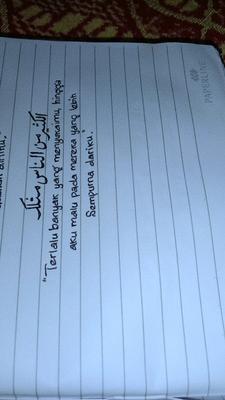 dirimu,"
الكثير من الناس مثلك
"Terlalu banyak yang menyukaimu, hingga
aku malu pada mereka yang lebih
Sempurna dariku."
PAPERLINE